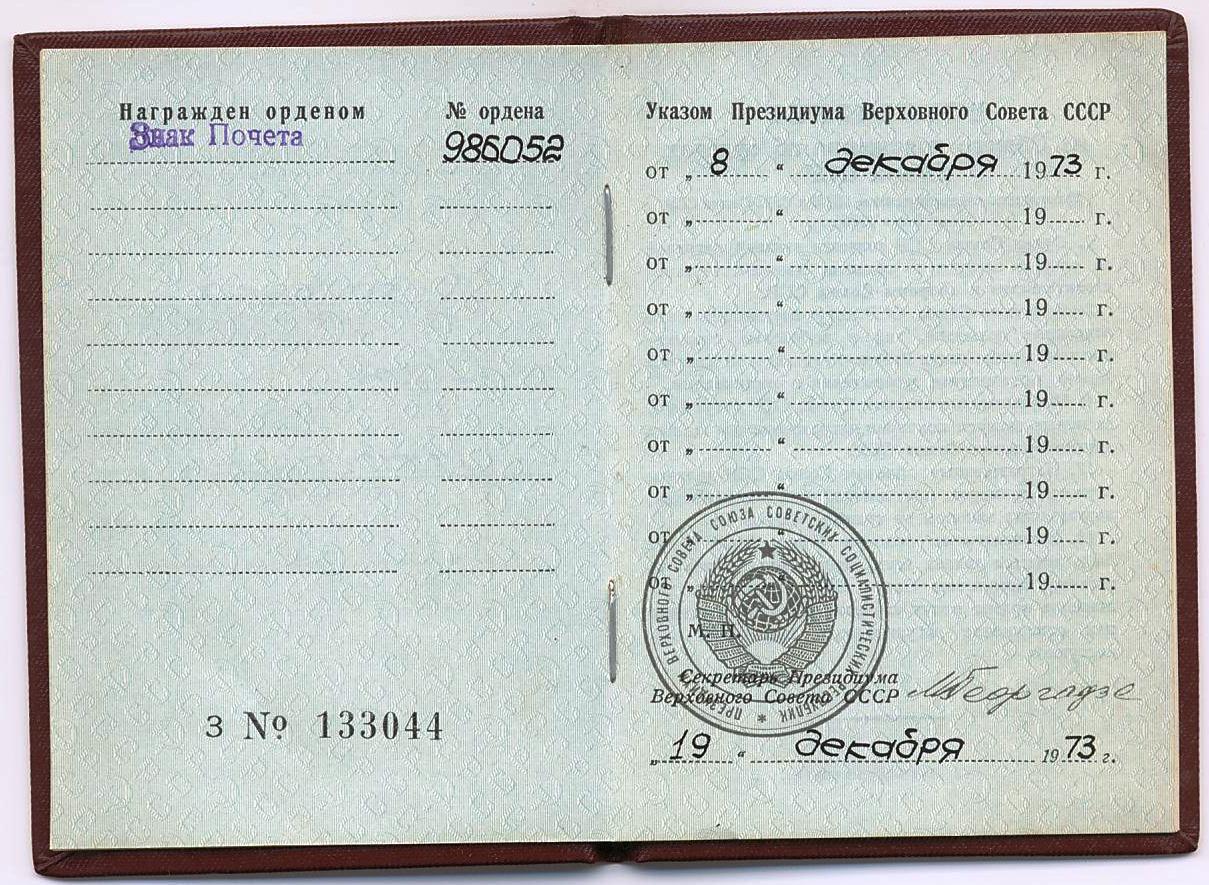 Награжден орденом
Знак Почета
№ ордена
986052
З № 133044
Указом Президиума Верховного Совета СССР
от „ 8 “ декабря 1973 г.
от „ “ 19 г.
от „ “ 19 г.
от „ “ 19 г.
от „ “ 19 г.
от „ “ 19 г.
от „ “ 19 г.
от „ “ 19 г.
от „ “ 19 г.
от „ “ 19 г.
ПРЕЗИДИУМ ВЕРХОВНОГО СОВЕТА СОЮЗА СОВЕТСКИХ СОЦИАЛИСТИЧЕСКИХ РЕСПУБЛИК *
М. П.
Секретарь Президиума
Верховного Совета СССР
МГеоргадзе
„ 19 “ декабря 1973 г.